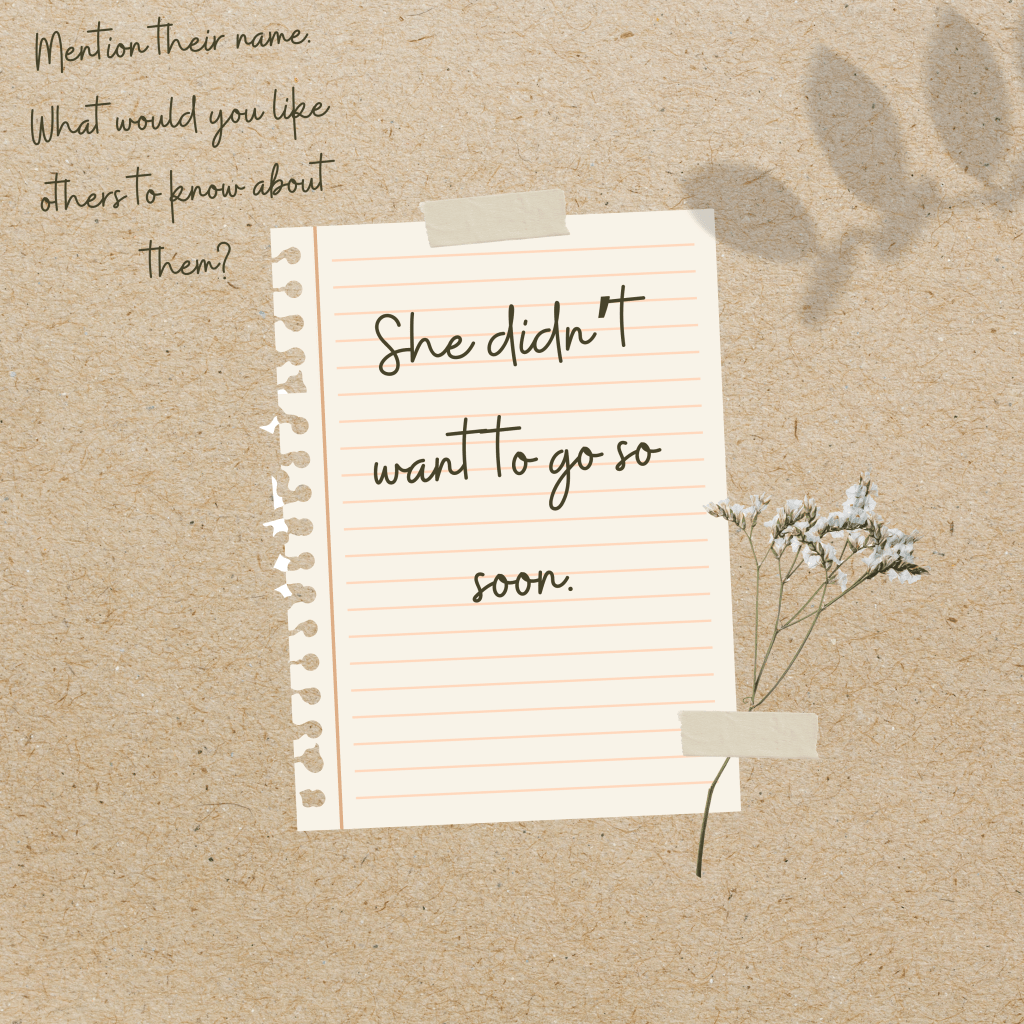 Mention their name.
What would you like
others to know about
them?
She didn't
want to go so
soon.